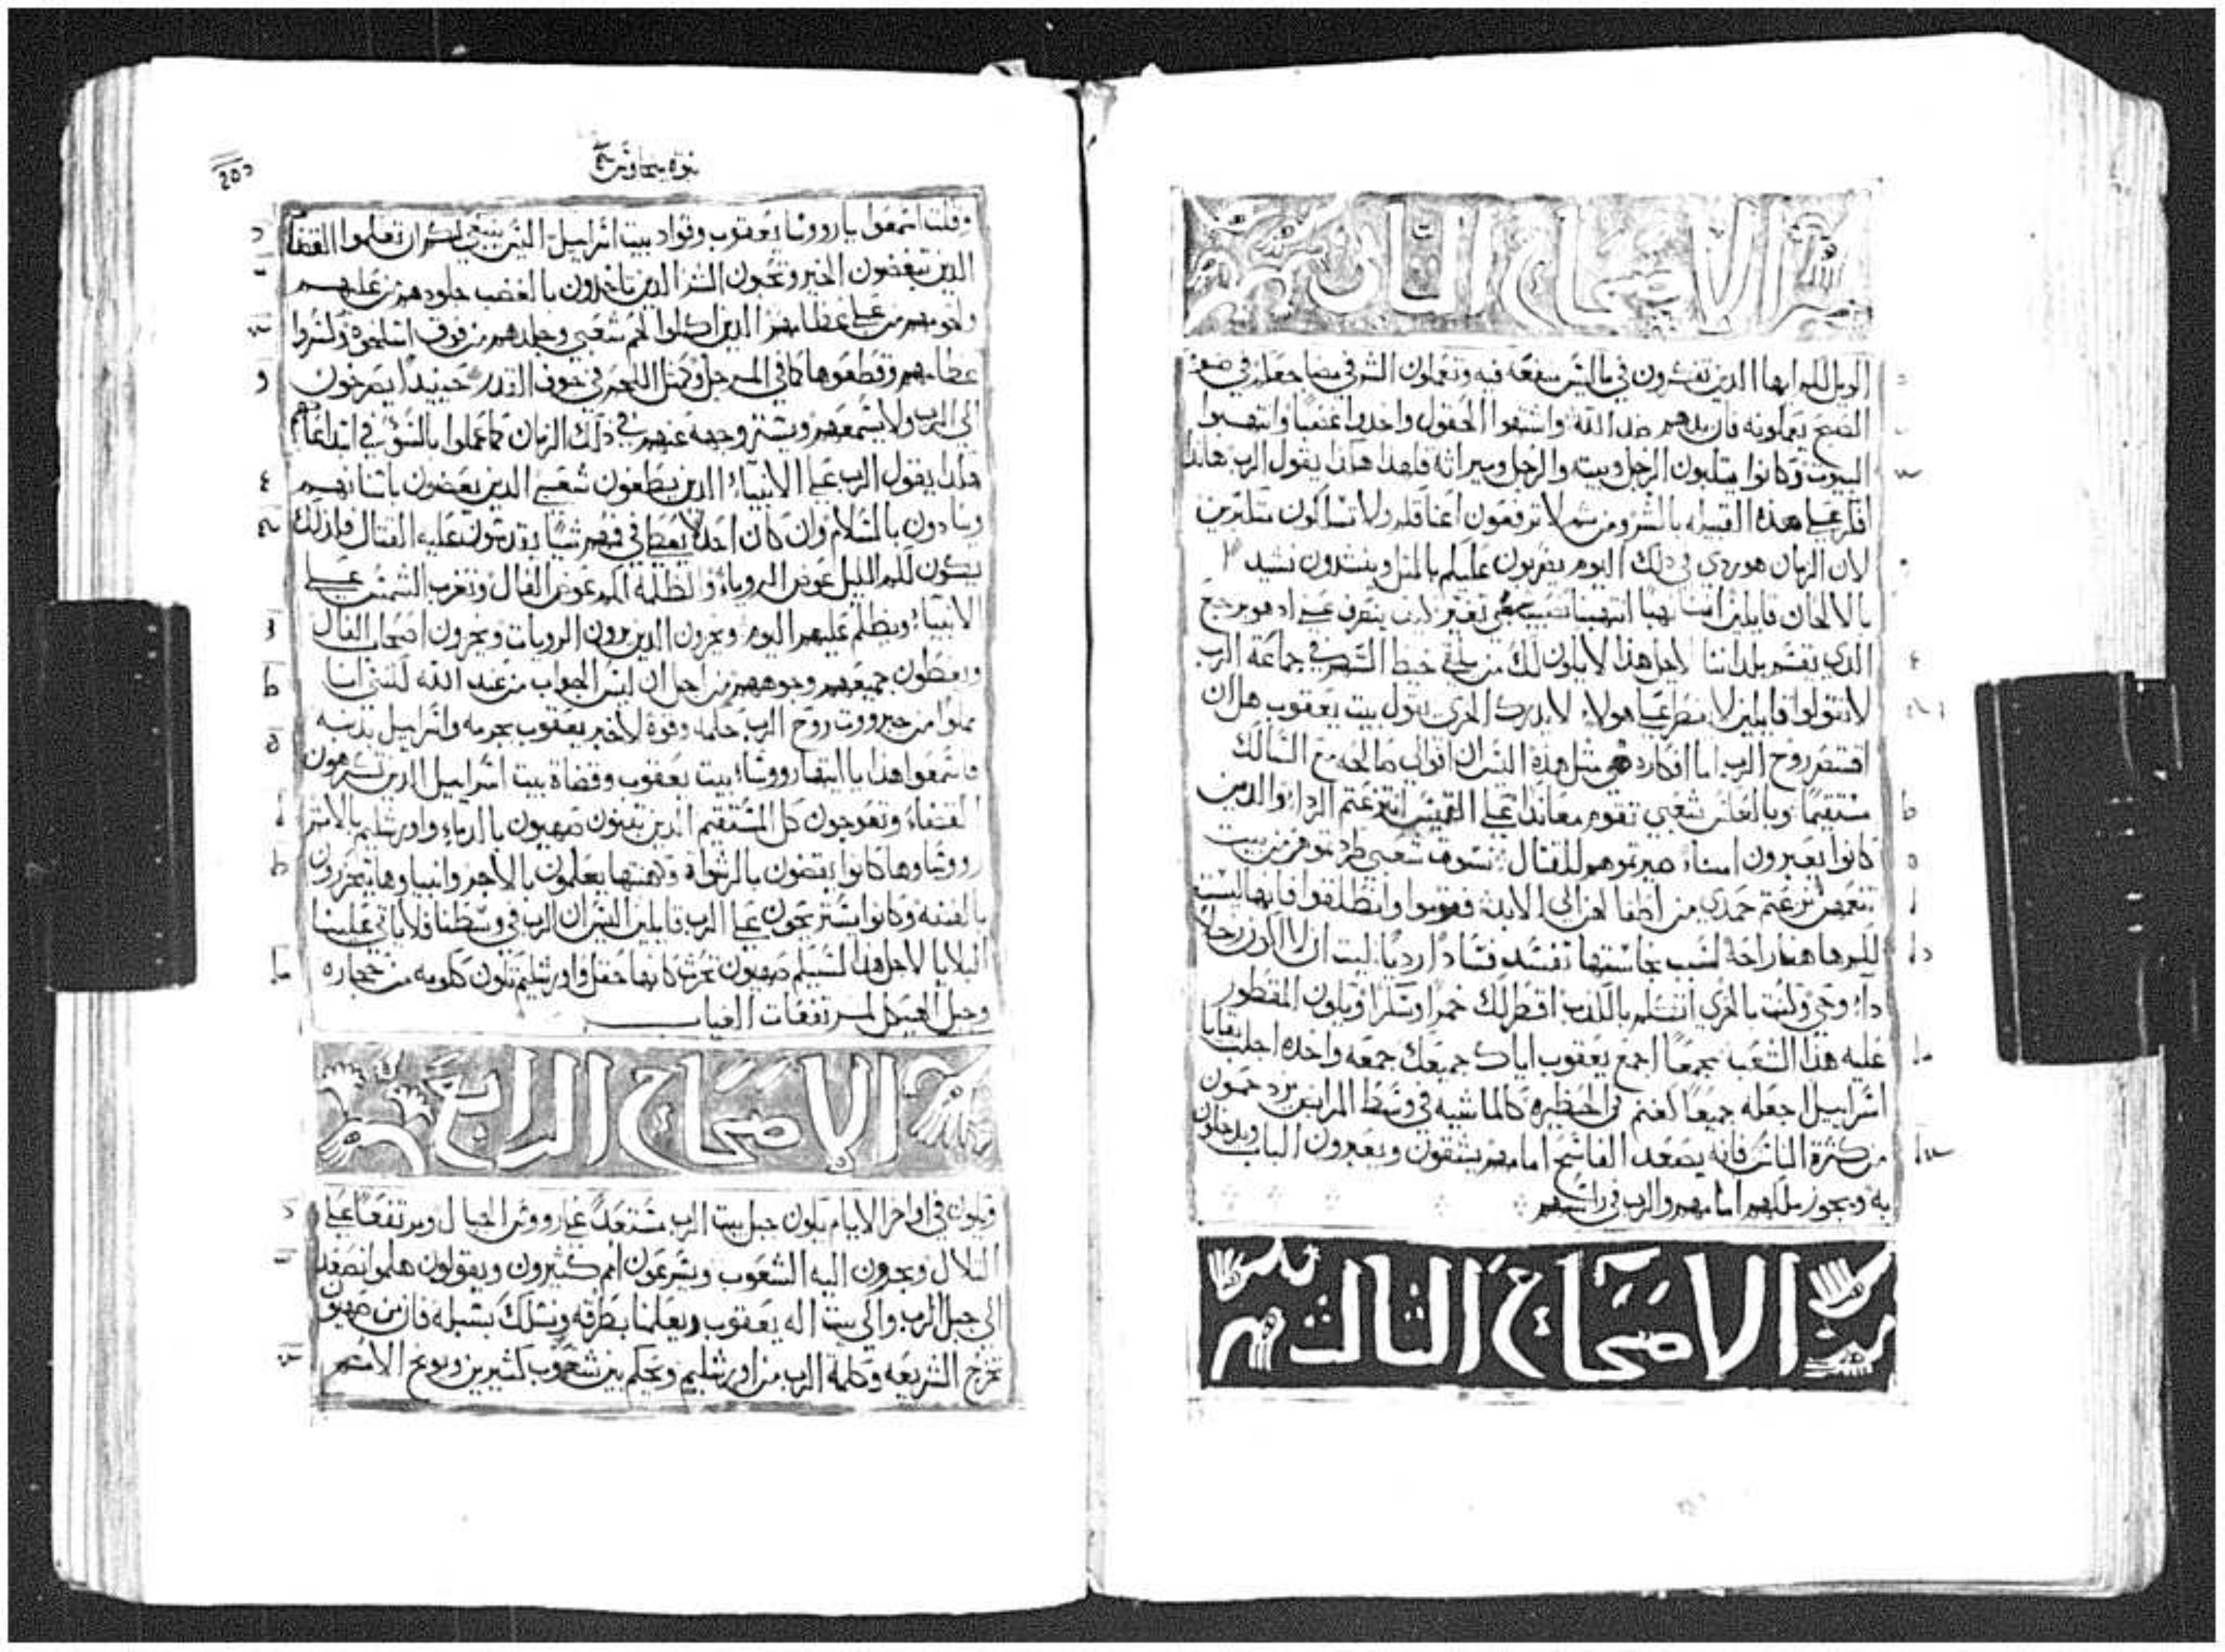 الاصحاح الثاني
الويل لكم ايها الذين تفتكرون في ما ليس منفعه فيه وتعملون الشر في مضاجعكم في ضوء
الصبح يعملونه فان يدهم ضد الله واشتهوا الحقول واخدوا غصبا وانتهبوا
البيوت وكانوا يتلبون الرجل وبيته والرجل وميراثه فلهذا هكذا يقول الرب هاندا
افكر على هذه القبيله بالشر ومن ثم لا ترفعون اعناقكم ولا تسالكون متكبرين
لان الزمان هو ردي في ذلك اليوم يضربون عليكم بالمثل وينشدون نشيد
بالالحان قايلين انتهبنا نصيب شعبي تغير ينصرف عني اد هو يرجع
الذي يقسم بلداننا لاجل هذا لا يكون لك من يلقي خيط السهم في جماعة الرب
لا تتولوا قايلين لا ينظر على هولاء لا يدرك الخزي يقول بيت يعقوب هل ان
اقتصر روح الرب اما افكاره هي مثل هذه اليس ان اقوالي صالحه مع السالك
مستقيمًا وبالعكس شعبي تقوم معاندا على القميص انتزعتم الرداء والدين
كانوا يعبرون امناء صيرتموهم للقتال نسوة شعبي طردتموهن من بيت
تنعمهن نزعتم حمدي من اطفالهن الى الابد فقوموا وانطلقوا فانها ليست
لكم هاهنا راحة لسبب نجاستها تفسد فسادًا رديا ليت ان لا اكون رجلا
داء روحي وليت بالحري اتكلم بالكذب اقطر لك خمرا وسكرا ويكون المقطور
عليه هذا الشعب بجمعًا اجمع يعقوب اياك جميعك جمعه واحده اجلب بقايا
اسراييل اجعله جميعا كغنم في الحظيره كالماشيه في وسط المرابض يزدحمون
من كثرة الناس فانه يصعد الفاسح امامهم يشقون ويعبرون الباب ويدخلون
به ويجوز ملكهم امامهم والرب في راسهم
الاصحاح الثالث
نبوة ميخا
وقلت اسمعوا يا رووسا يعقوب وقواد بيت اسراييل اليس ينبغي لكم ان تعلموا القضا
الذين تبغضون الخير وتحبون الشر الذين تاخذون بالغضب جلودهم من عليهم
ولحومهم من على عظامهم الذين اكلوا لحم شعبي وجلدهم من فوق اسلخوه وكسروا
عظامهم وقطعوها كما في المرجل وكمثل اللحم في جوف القدر حينيدًا يصرخون
الى الرب ولا يسمعهم ويستر وجهه عنهم في ذلك الزمان كما عملوا بالسوء في ابتداعاتهم
هكدا يقول الرب على الانبياء الذين يطغون شعبي الدين يعضون باسنانهم
وينادون بالسلام وان كان احد لا يعطي في فمهم شيًا يقدسون عليه القتال فلذلك
يكون لكم الليل عوض الروياء والظلمه لكم عوض الفال وتغرب الشمس على
الانبياء ويظلم عليهم اليوم ويخزون الذين يرون الرويات ويخزون اصحاب الفال
ويغطون جميعهم وجوههم من اجل ان ليس الجواب من عند الله لكنني انا
مملوا من جبرووت روح الرب حكمه وقوة لاخبر يعقوب بجرمه واسراييل بذنبه
فاسمعوا هذا يا ايتها رووساء بيت يعقوب وقضاة بيت اسراييل الدين تكرهون
القضاء وتعوجون كل المستقيم الذين يبنون صهيون بالدماء واورشليم بالاتم
رووساوها كانوا يقضون بالرشوة وكهنتها يعلمون بالاجر وانبياوها يتخرزون
بالفضه وكانوا يستريحون على الرب قايلين اليس ان الرب في وسطنا فلا ياتي علينا
البلايا لاجل هذا لسببكم صهيون تحرث كانها حقل واورشليم تكون ككومه من حجاره
وجبل الهيكل لمرتفعات الغياب
الاصحاح الرابع
ويكون في اواخر الايام يكون جبل بيت الرب مستعدًا على رووس الجبال ومرتفعًا على
التلال ويجرون اليه الشعوب ويسرعون امم كثيرون ويقولون هلموا نصعد
الى جبل الرب والى بيت اله يعقوب ويعلمنا بطرقه ونسلك بسبله فان من صهيون
تخرج الشريعه وكلمة الرب من اورشليم ويحكم بين شعوب كثيرين ويوبخ الامم